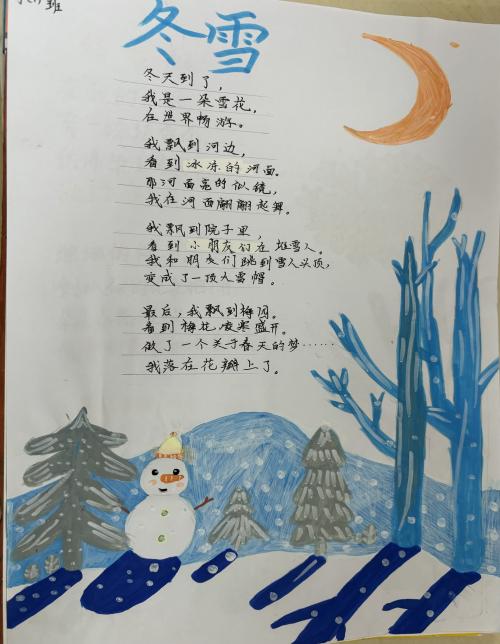 班
冬雪
冬天到了，
我是一朵雪花，
在世界畅游。
我飘到河边，
看到冰冻的河面。
那河面亮的似镜，
我在河面翩翩起舞。
我飘到院子里，
看到小朋友们在堆雪人。
我和朋友们跳到雪人头顶，
变成了一顶大雪帽。
最后，我飘到梅园。
看到梅花凌寒盛开。
做了一个关于春天的梦……
我落在花瓣上了。